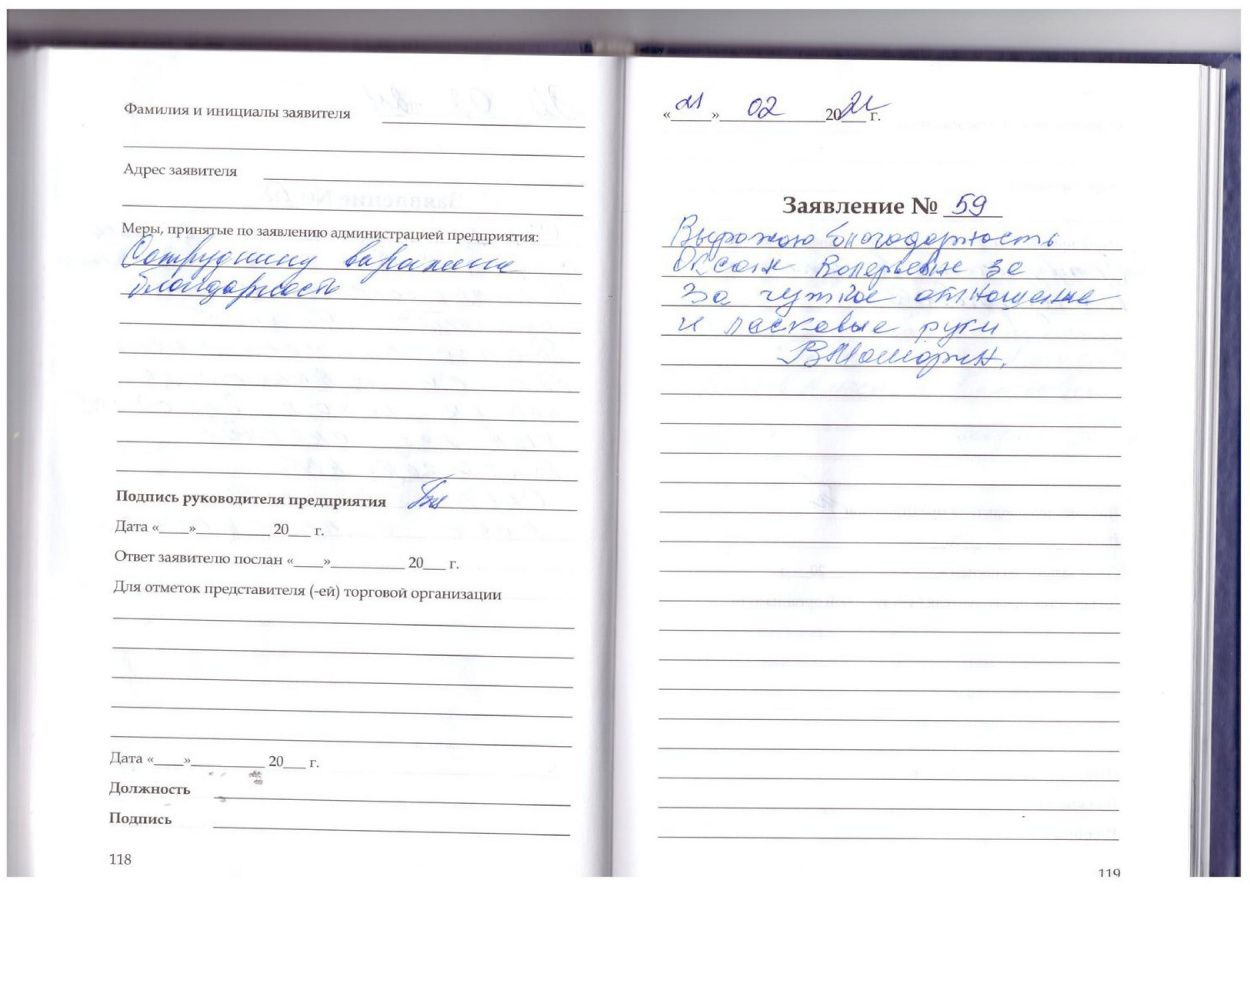 Фамилия и инициалы заявителя
Адрес заявителя
Меры, принятые по заявлению администрацией предприятия:
Сотруднику выражена
благодарность
Подпись руководителя предприятия
Дата «____»__________ 20___ г.
Ответ заявителю послан «____»__________ 20___ г.
Для отметок представителя (-ей) торговой организации
Дата «____»__________ 20___ г.
Должность
Подпись
118
«21» 02 2021 г.
Заявление № 59
Выражаю благодарность
Оксане Валерьевне за
за чуткое отношение
и ласковые руки
119